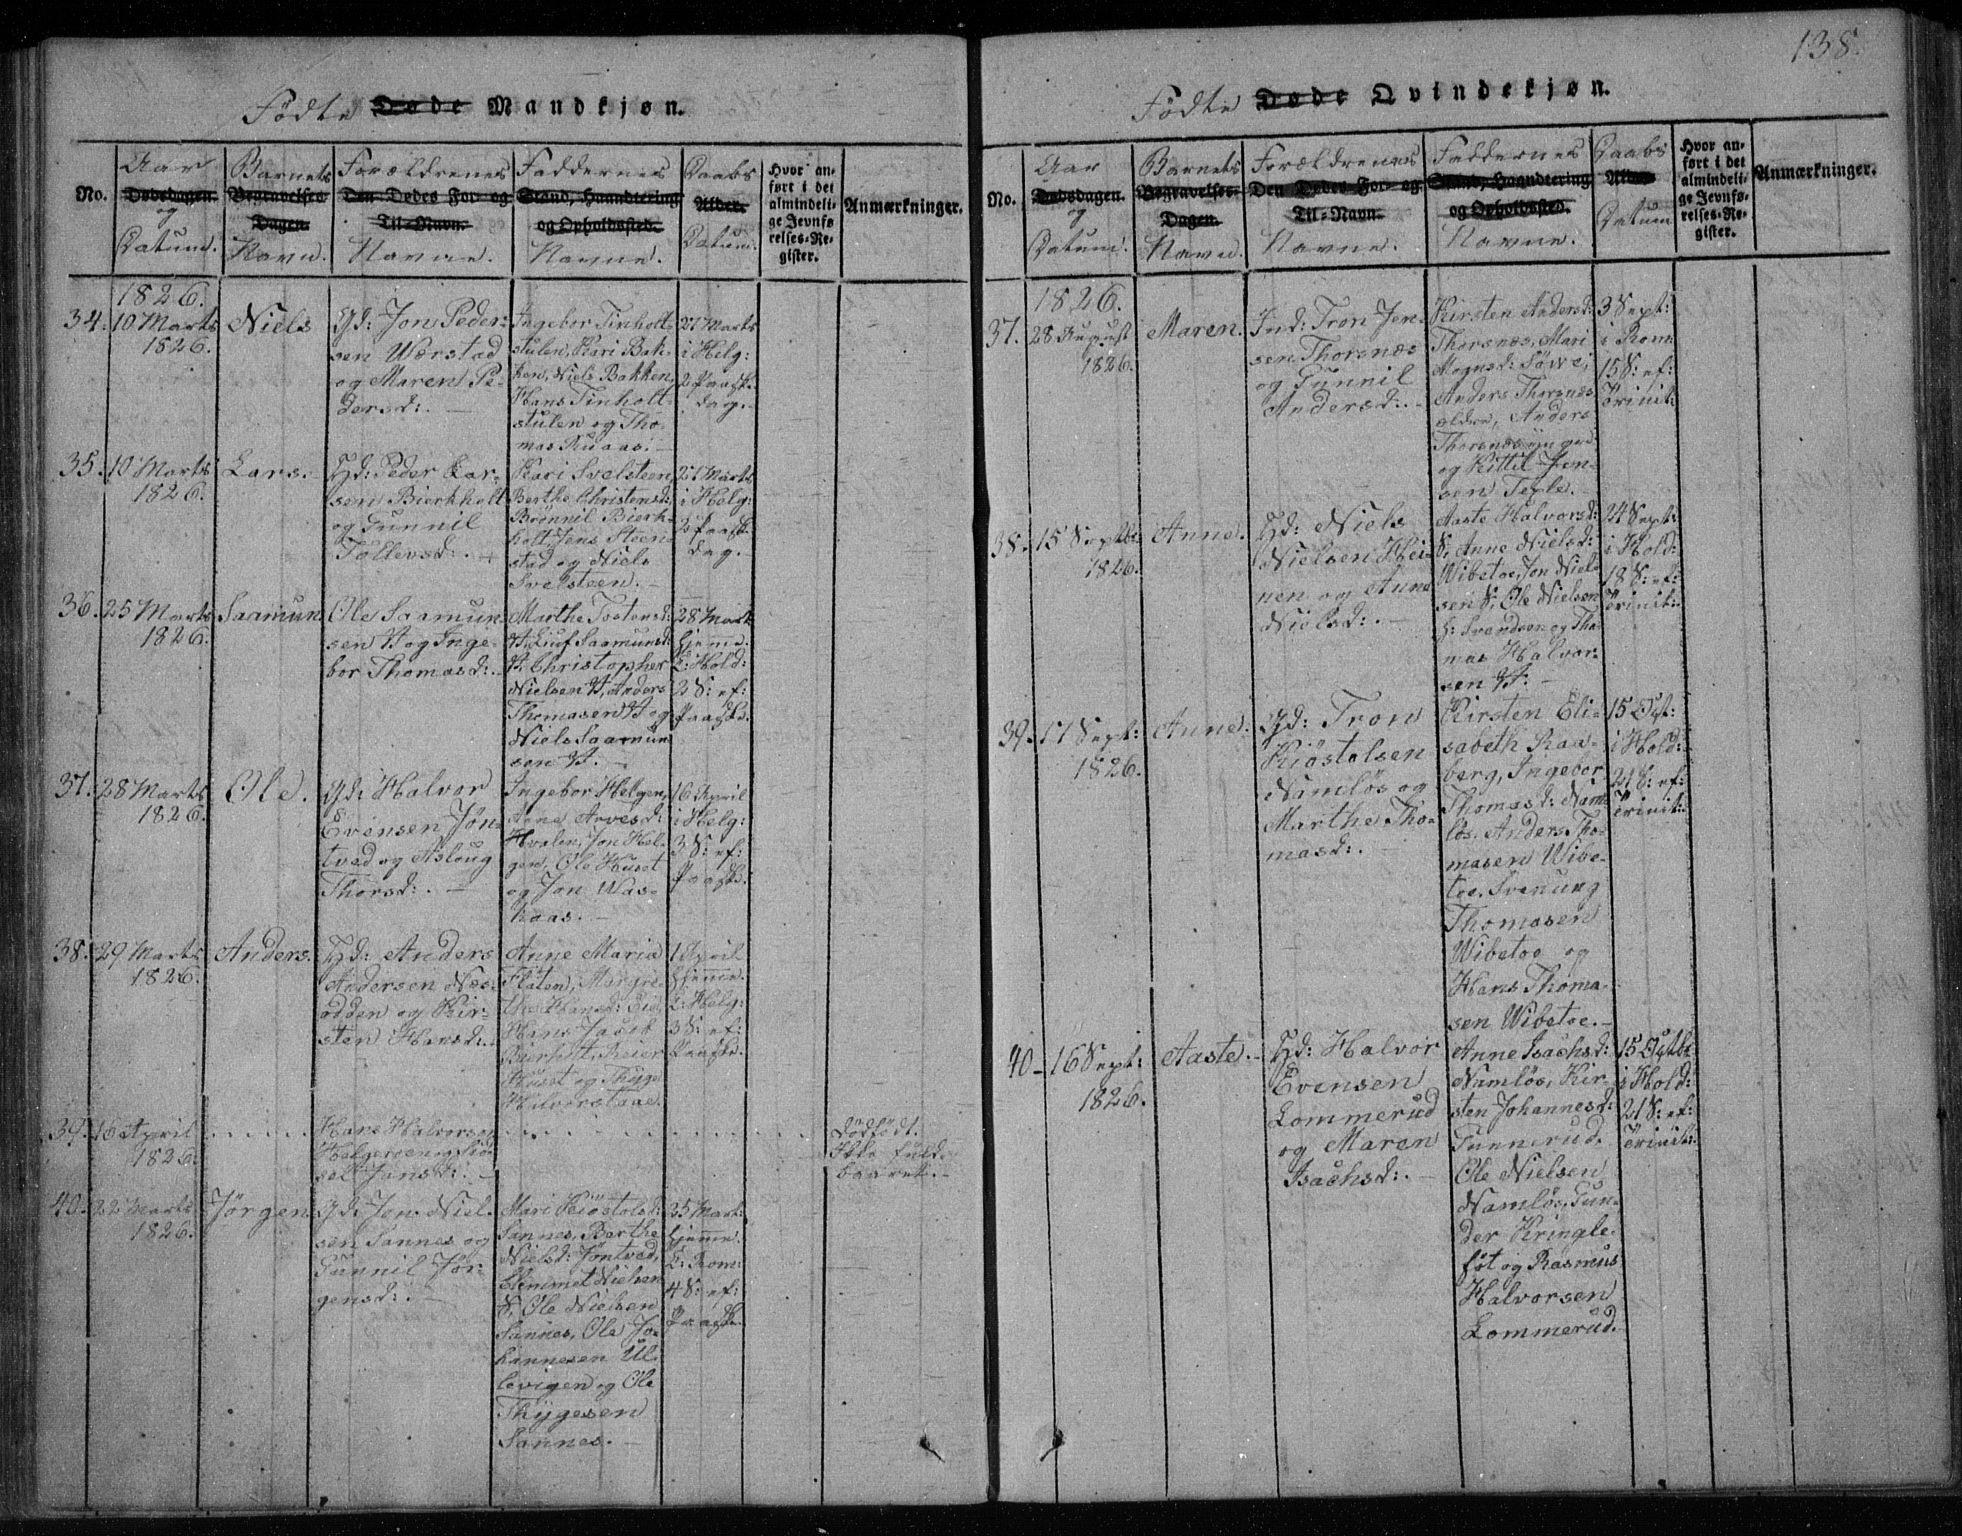 138.
Fødte Døde Mandkjøn.
No.
Aar
Dødsdagen.
og
Datum.
Barnets
Begravelses-
Dagen.
Navn.
Forældrenes
Den Dødes For og
Til-Navn.
Navne.
Faddernes
Stand, Haandtering
og Opholdssted.
Navne.
Daabs
Alder.
Datum.
Hvor an-
ført i det
almindeli-
ge Jevnfø
relses-Re-
gister.
Anmærkninger.
1826.
34.
10 Marts
1826.
Niels
Gd: Jon Peder-
sen Værstad
og Maren Pe-
dersd:.
Ingebor Tinholt-
stulen, Kari Bak-
ken, Niels Bakken,
Hans Tinholt-
stulen og Tho-
mas Ruaas.
27 Marts
i Helg:
2 Paaske-
dag.
35.
10 Marts
1826.
Lars.
Hd: Peder Lar-
sen Bierkholt
og Gunnil
Tollevsd:.
Kari Svelsteen,
Berthe Christensd:
Brønnil Bierk-
holt, Jens Steen-
stad og Niels
Svelsteen.
27 Marts
i Helg:
2 Paaske-
dag.
36.
25 Marts
1826.
Saamun
Ole Saamun-
sen V og Inge-
bor Thomasd:.
Marthe Tostensd:
Christopher
Nielsen V, Anders
Thomasen V og
Niels Saamun-
sen V.
28 Marts
hjemme.
i Hold:
3 S: ef:
Paaske.
37.
28 Marts
1826.
Ole.
Gd: Halvor
Evensen Jøn-
tved og Asloug
Thorsd:.
Ingebor Helgen,
Anne Arvesd:
Hvalen, Jon Hel-
gen, Ole Huset
og Jon Vas-
haas.
16 April
i Helg:
3 S: ef:
Paaske.
38.
29 Marts
1826.
Anders.
Hd: Anders
Andersen Næs-
odden og Kir-
sten Hansd:.
Anne Maria
Flaten, Margre-
the Hansd: Eie,
Hans Jacob
Bierholt, Reier
Huset og Thyge
Hilverstaae.
1 April
hjemme.
i Helg:
3 S: ef:
Paaske.
39.
16 April
1826.
Hans Halvorsen
Helgeroen og Sid-
sel Jonsd:.
Dødfødt.
Ikke fuld-
baaret.
40.
22 Marts
1826.
Jørgen
Gd: Jon Niel-
sen Sannes og
Gunnil Jør-
gensd:.
Mari Kiøstolsd:
Sannes, Berthe
Nielsd: Jøntved,
Clemmet Nielsen
S, Ole Nielsen
Sannes, Ole Jo-
hannesen Ul-
levigen og Ole
Thygesen
Sannes.
25 Mart:
hjemme.
i Rom:
4 S: ef:
Paaske.
Fødte Døde Qvindekjøn.
No.
Aar
Dødsdagen.
og
Datum.
Barnets
Begravelses-
Dagen.
Navn.
Forældrenes
Den Dødes For- og
Til-Navn.
Navne.
Faddernes
Stand, Haandtering
og Opholdssted.
Navne.
Daabs
Alder
Datum
Hvor an-
ført i det
almindeli-
ge Jevnfø-
relses-Re-
gister.
Anmærkninger.
1826.
37.
28 August
1826.
Maren.
Ind: Tron Jen-
sen Thorsnæs
og Gunnil
Andersd:.
Kirsten Andersd:
Thorsnæs, Mari
Mognsd: Søwe,
Anders Thorsnæs
ældre, Anders
Thorsnæs yngre
og Kittil Jen-
sen Tegle.
3 Sept:
i Rom:
15 S: ef:
Trinit:
38.
15 Septbr
1826.
Anne.
Hd: Niels
Nielsen Hei-
nen og Anne
Nielsd:.
Aaste Halvorsd:
S, Anne Nielsd:
Wibetoe, Jon Niel-
sen S, Ole Nielsen
S: Svendsen og Tho-
mas Halvor-
sen V.
24 Sept:
i Hold:
18 S: ef:
Trinit:
39.
17 Sept:
1826.
Anne.
Gd: Tron
Kiøstolsen
Namløs og
Marthe Tho-
masd:.
Kirsten Eli-
sabeth Raa-
berg, Ingebor
Thomasd: Nam-
løs, Anders Tho-
masen Wibe-
toe, Svenung
Thomasen
Wibetoe og
Hans Thoma-
sen Wibetoe.
15 Oct:
i Hold:
21 S: ef:
Trinit:
40
16 Sept:
1826.
Aaste.
Hd: Halvor
Evensen
Lommerud
og Maren
Isachsd:.
Anne Isachsd:
Namløs, Kir-
sten Johannesd:
Tunnerud,
Ole Nielsen
Namløs, Gun-
der Kringle-
fot og Rasmus
Halvorsen
Lommerud.
15 Octbr
i Hold:
21 S: ef:
Trinit: